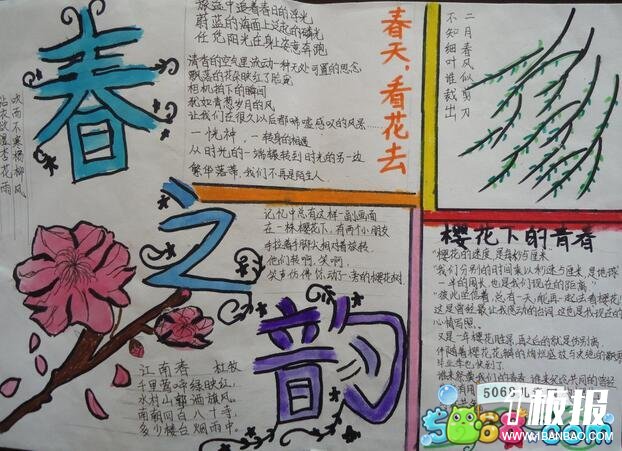 春之韵
沾衣欲湿杏花雨
吹面不寒杨柳风
蔚蓝的海面上泛起的磷光
任凭阳光在身上姿意奔跑
清香的空气里流动一种无处可置的思念
飘落的花朵映红了脸庞
相机拍下的瞬间
就如青葱岁月的风
让我们在很久以后都唏嘘感叹的风景……
一恍神，一转身的相遇
从时光的一端辗转到时光的另一边
繁华落幕，我们不再是陌生人
春天，看花去
二月春风似剪刀
不知细叶谁裁出
记忆中总有这样一副画面
在一株樱花下，有两个小朋友
手拉着手脚尖相对着旋转
他们笑啊，笑啊，
笑声仿佛惊动了一旁的樱花树
江南春 杜牧
千里莺啼绿映红，
水村山郭酒旗风。
南朝四百八十寺，
多少楼台烟雨中。
樱花下的青春
"樱花的速度，是每秒5厘米
我们分别的时间乘以秒速5厘米，是地球
一半的周长，也是我们现在的距离。"
"彼此坚信着，总有一天，能再一起去看樱花"
这是曾经最让我感动的台词，这也是我现在的
心情写照。
又是一年樱花胜景，再之后的就是伤别离，
伴随着樱花花瓣的绚烂盛
毕业季也来到了
5068儿
板报
5068.com
WWW.1BANBAO.COM